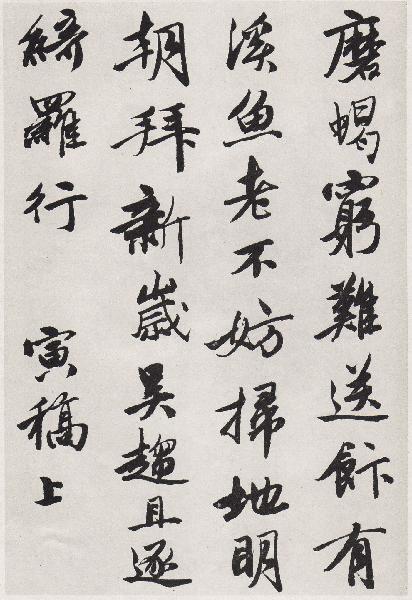 磨蝎窮難送飰有
溪魚老不妨掃地明
朝拜新歲吴趨且逐
綺羅行　寅稿上